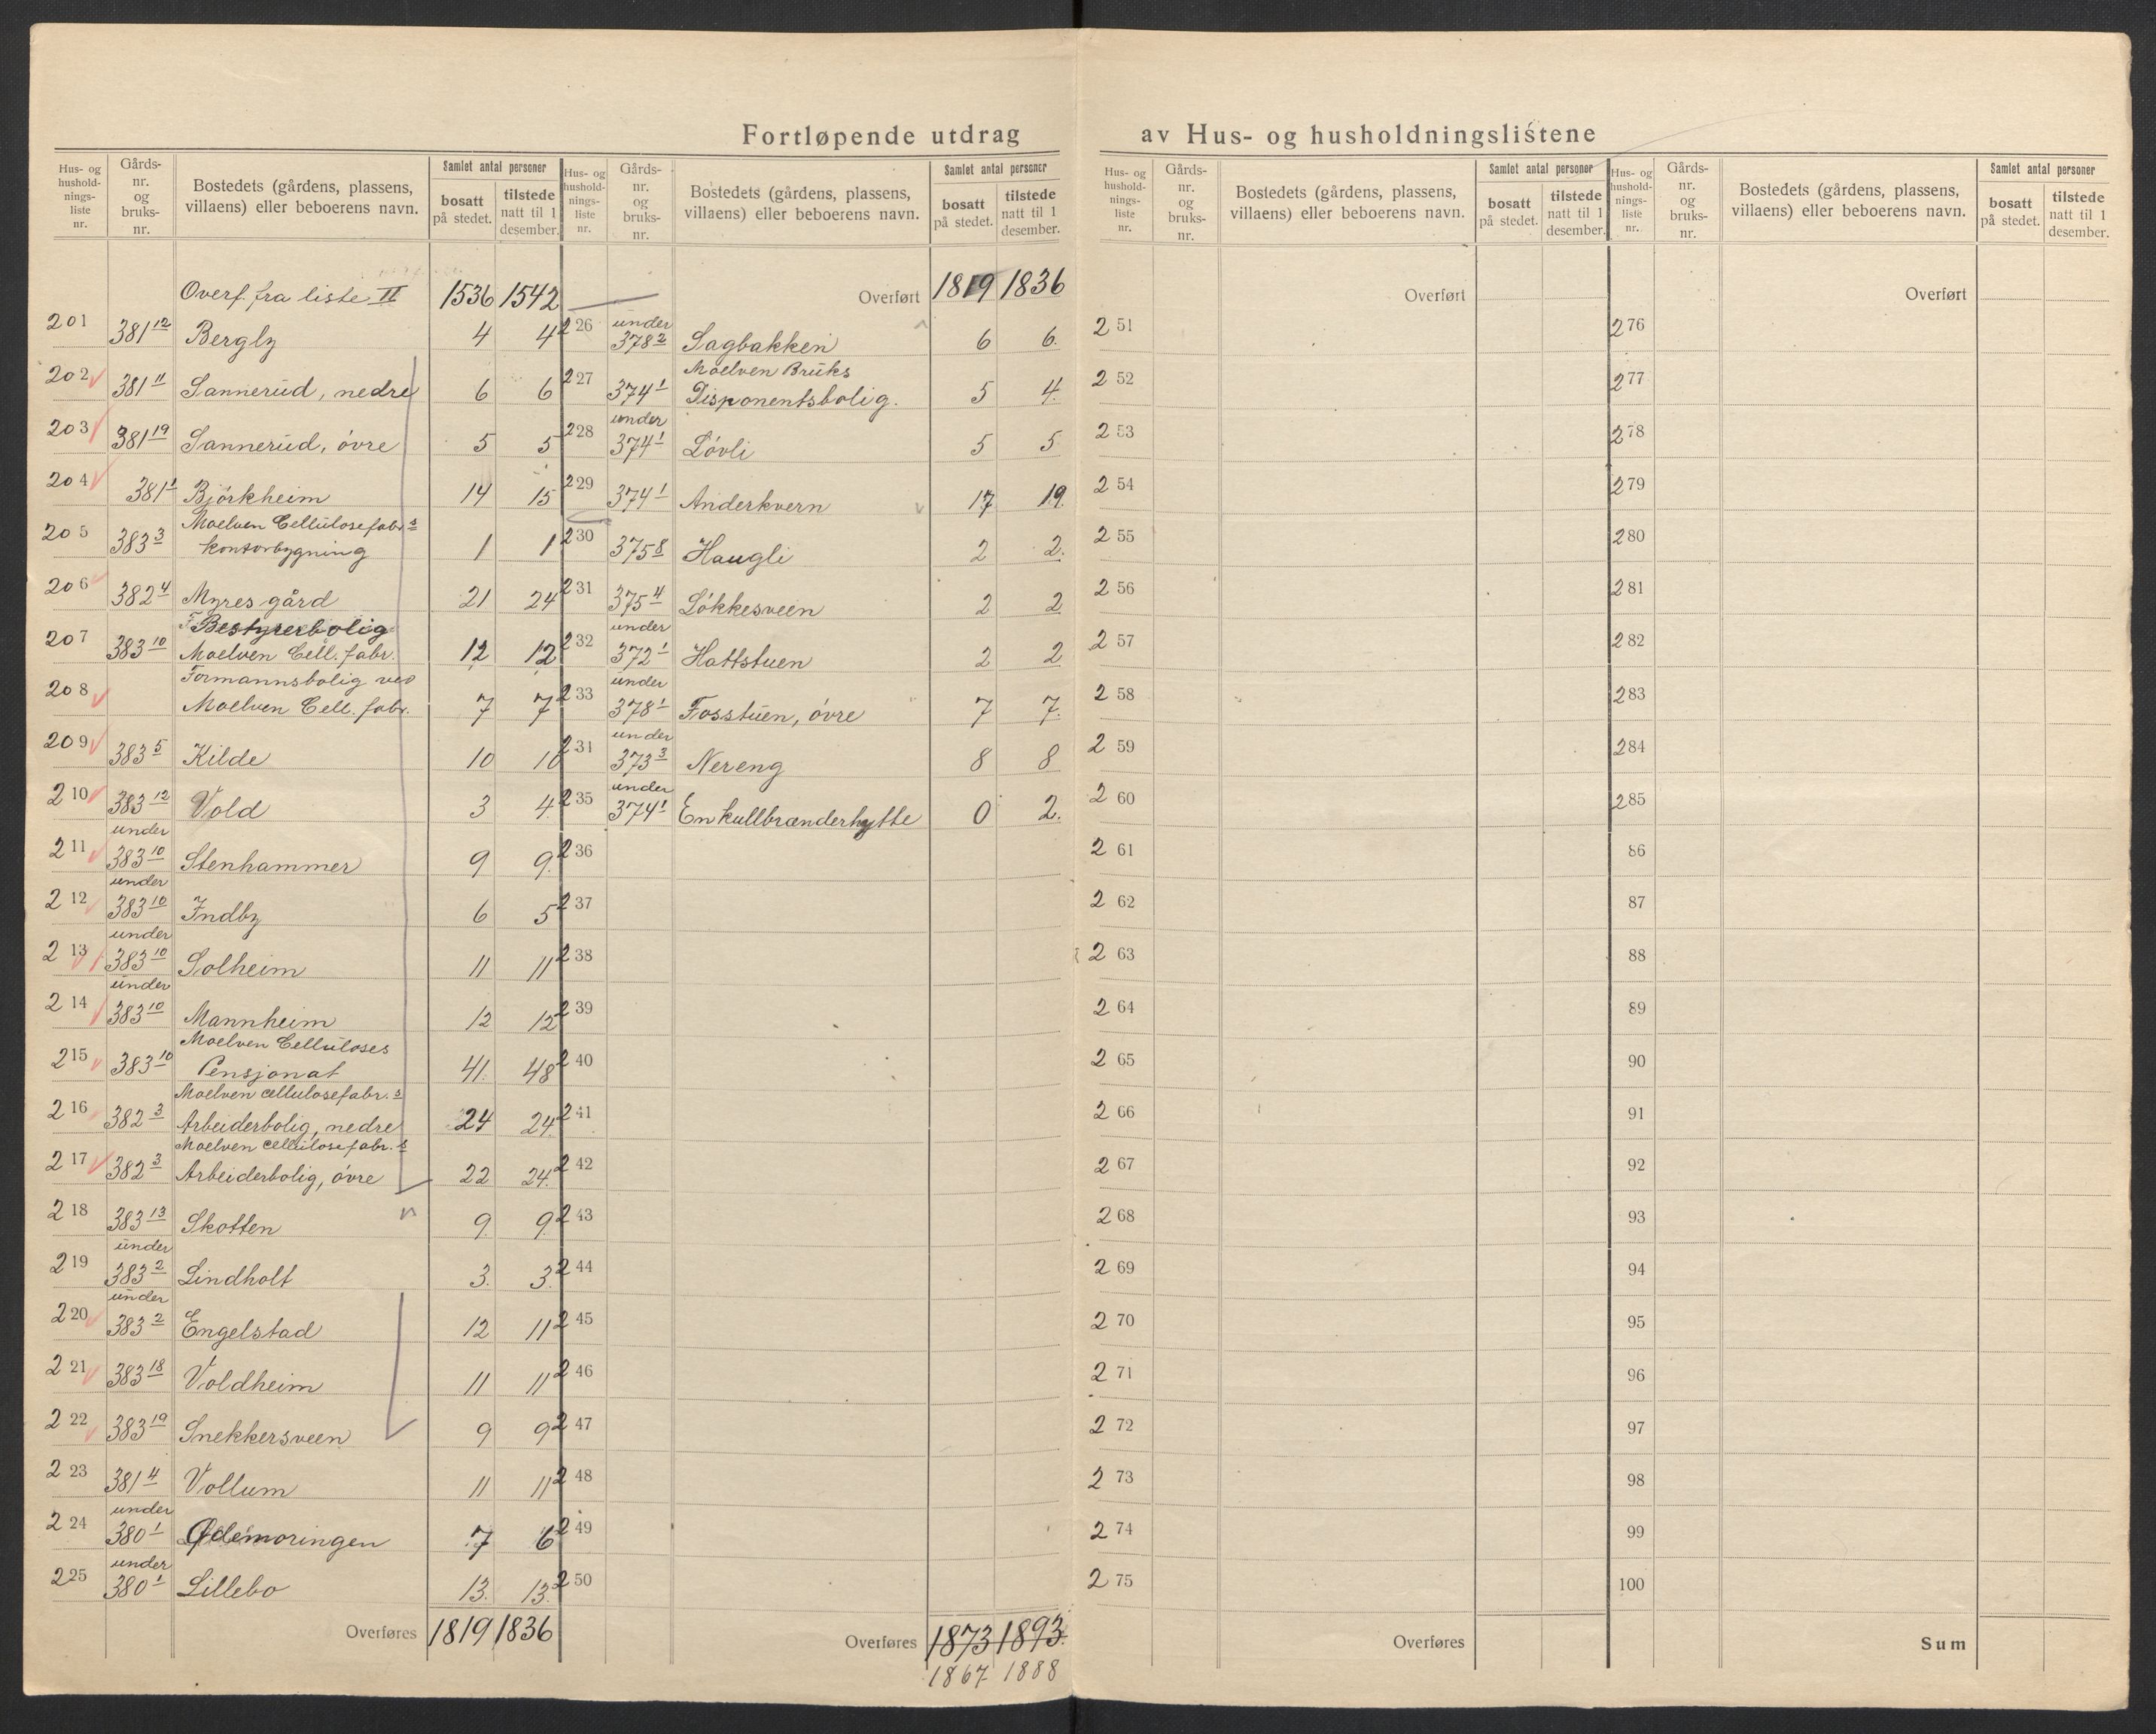 Fortløpende utdrag av Hus- og husholdningslistene
Hus- og hushold-nings-liste nr. Gårds-nr. og bruks-nr. Bostedets (gårdens, plassens, villaens) eller beboerens navn. Samlet antal personer bosatt på stedet. tilstede natt til 1 desember.
Overf. fra liste II 1536 1542
201 381 12 Bergly 4 4
202 381 11 Sannerud, nedre 6 6
203 381 19 Sannerud, óvre 5 5
204 381 1 Bjórkheim 14 15
Moelven Cellulosefabr. s
205 383 3 kontorbygning 1 1
206 382 4 Myres gård 21 24
Bestyrerbolig
207 383 10 Moelven Cell. fabr. 12 12
Formannsbolig ved
208 Moelven Cell. fabr. 7 7
209 383 5 Kilde 10 10
210 383 12 Vold 3 4
under
211 383 10 Stenhammer 9 9
under
212 383 10 Indby 6 5
under
213 383 10 Solheim 11 11
under
214 383 10 Mannheim 12 12
Moelven Celluloses
215 383 10 Pensjonat 41 48
Moelven cellulosefabr. s
216 382 3 Arbeiderbolig, nedre 24 24
Moelven cellulosefabr. s
217 382 3 Arbeiderbolig, óvre 22 24
218 383 13 Skotten 9 9
under
219 383 2 Lindholt 3 3
under
220 383 2 Engelstad 12 11
221 383 18 Voldheim 11 11
222 383 19 Snekkersveen 9 9
223 381 4 Vollum 11 11
under
224 380 1 Ødemoringen 7 6
under
225 380 1 Lillebo 13 13
Overføres 1819 1836
Hus- og hushold-nings-liste nr. Gårds-nr. og bruks-nr. Bostedets (gårdens, plassens, villaens) eller beboerens navn. Samlet antal personer bosatt på stedet. tilstede natt til 1 desember.
Overført 1819 1836
under
226 378 2 Sagbakken 6 6
Moelven Bruks
227 374 1 Disponentsbolig. 5 4
under
228 374 1 Lóvli 5 5
229 374 1 Anderkvern 17 19
230 375 8 Haugli 2 2
231 375 4 Lókkesveen 2 2
under
232 372 1 Hattstuen 2 2
under
233 378 1 Fosstuen, óvre 7 7
under
231 373 3 Nereng 8 8
under
235 374 1 En kullbrænderhytte 0 2
236
237
238
239
240
241
242
243
244
245
246
247
248
249
250
Overføres 1873 1893
1867 1888
Hus- og hushold-nings-liste nr. Gårds-nr. og bruks-nr. Bostedets (gårdens, plassens, villaens) eller beboerens navn. Samlet antal personer bosatt på stedet. tilstede natt til 1 desember.
Overført
251
252
253
254
255
256
257
258
259
260
261
262
263
264
265
266
267
268
269
270
271
272
273
274
275
Overføres
Hus- og hushold-nings-liste nr. Gårds-nr. og bruks-nr. Bostedets (gårdens, plassens, villaens) eller beboerens navn. Samlet antal personer bosatt på stedet. tilstede natt til 1 desember.
Overført
276
277
278
279
280
281
282
283
284
285
86
87
88
89
90
91
92
93
94
95
96
97
98
99
100
Sum